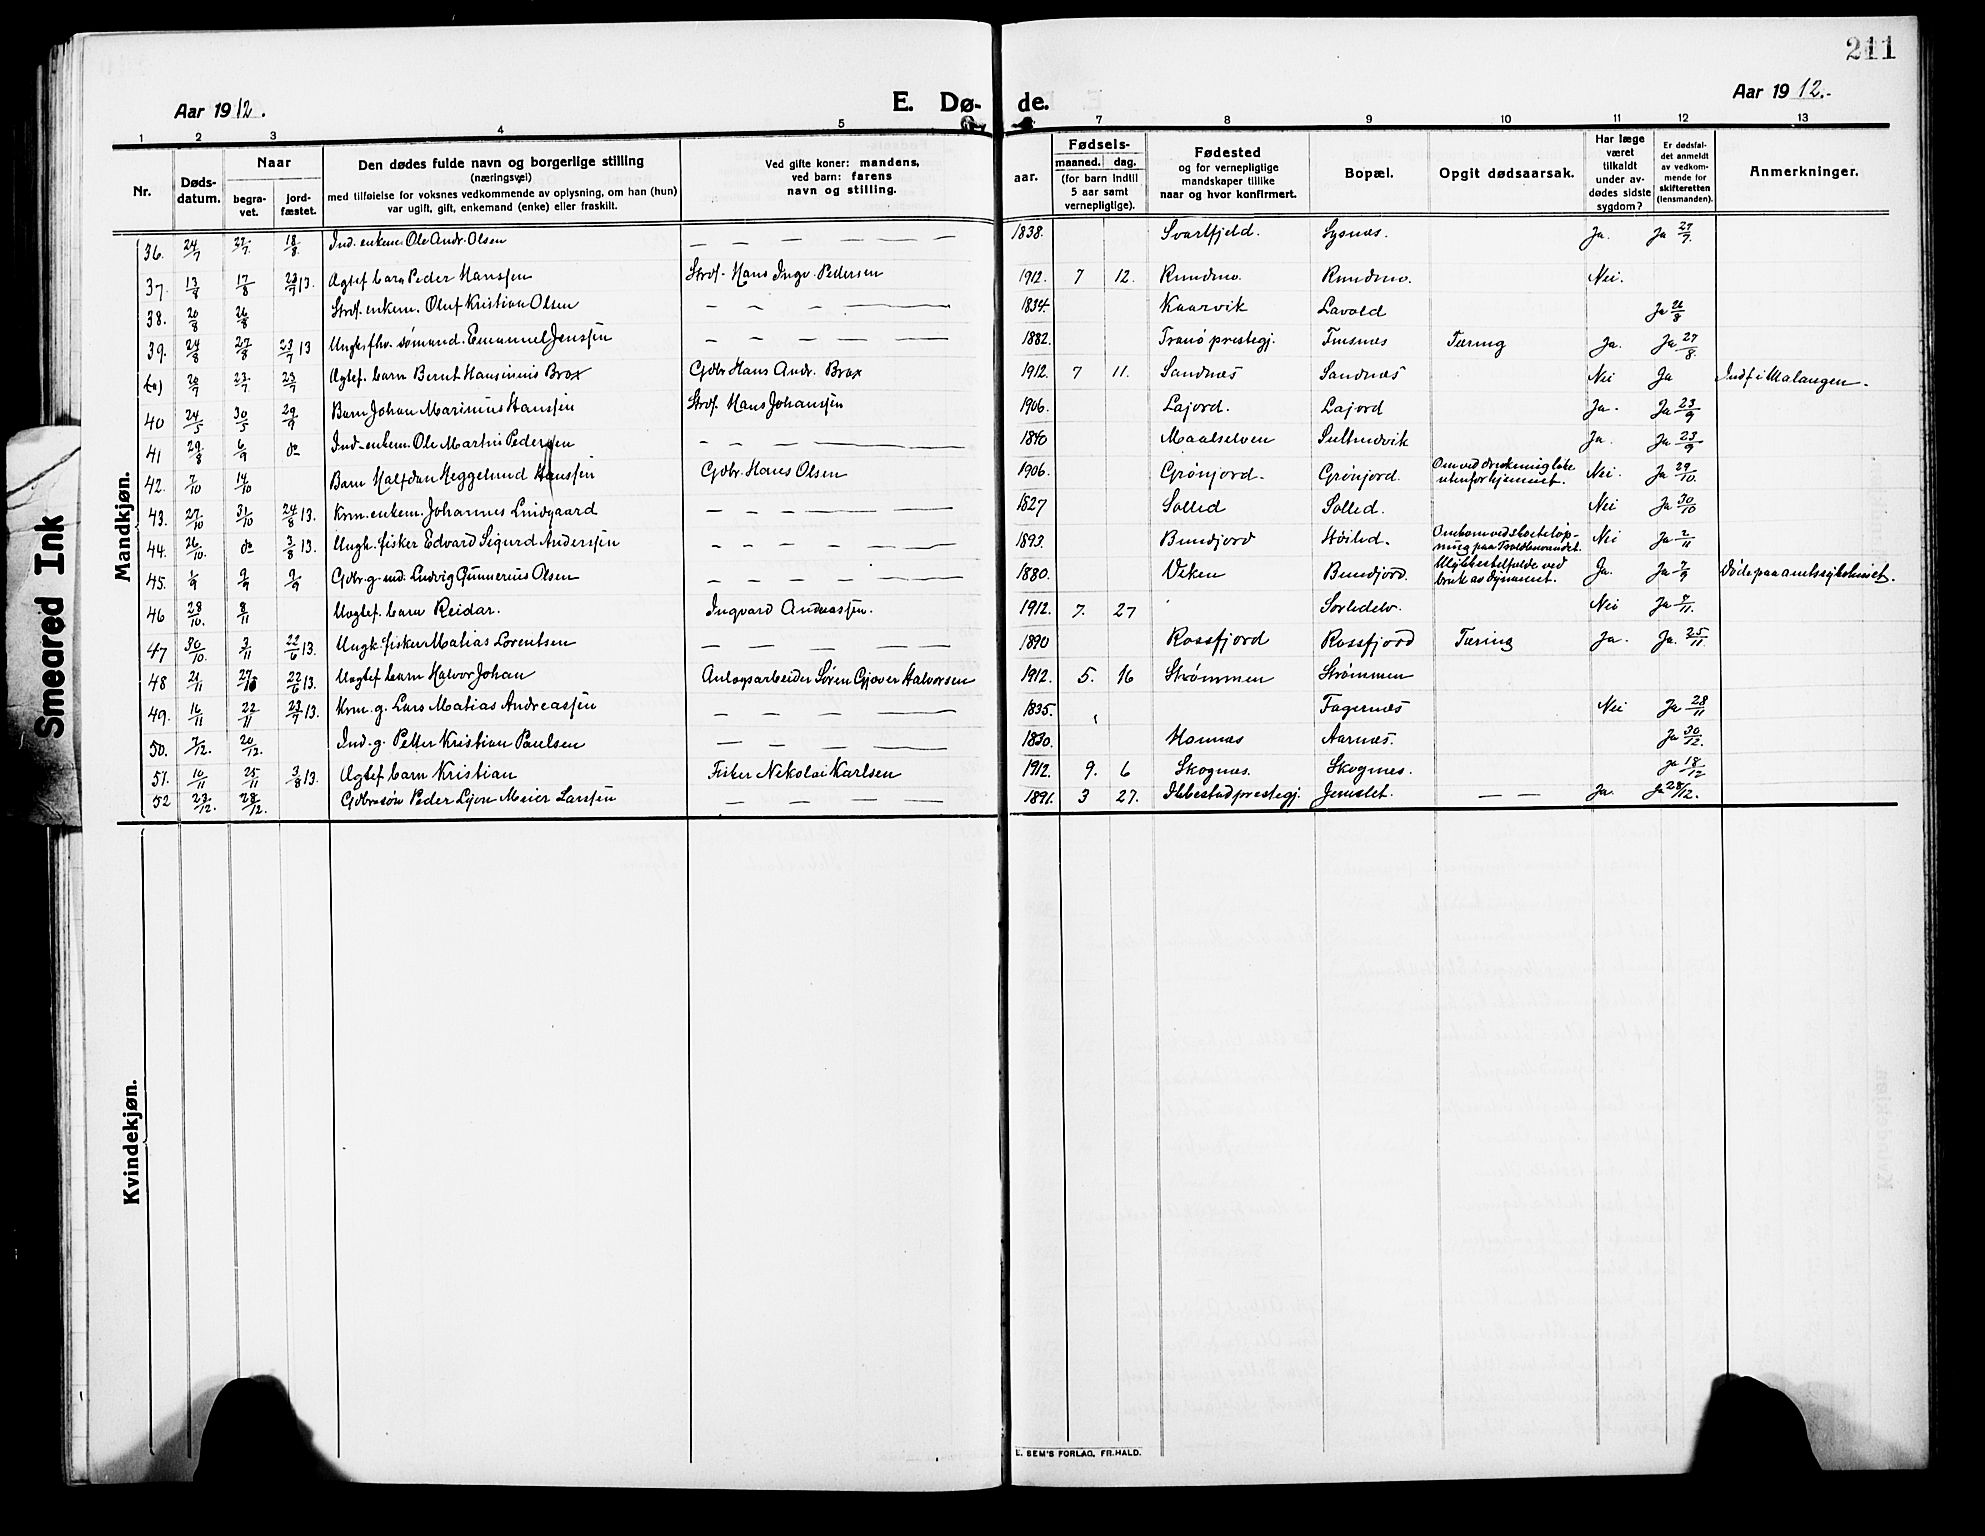 211
Aar 1912.
E. Dø-
de.
Aar 1912.
1 2 3 4 5 6 7 8 9 10 11 12 13
Nr.
Døds-
datum.
Naar
begra-
vet.
jord-
fæstet.
Den dødes fulde navn og borgerlige stilling
(næringsvei)
med tilføielse for voksnes vedkommende av oplysning, om han (hun)
var ugift, gift, enkemand (enke) eller fraskilt.
Ved gifte koner: mandens,
ved barn: farens
navn og stilling.
aar.
Fødsels-
maaned. dag.
(for barn indtil
5 aar samt
vernepligtige).
Fødested
og for vernepligtige
mandskaper tillike
naar og hvor konfirmert.
Bopæl.
Opgit dødsaarsak.
Har læge
været
tilkaldt
under av-
dødes sidste
sygdom?
Er dødsfal-
det anmeldt
av vedkom-
mende for
skifteretten
(lensmanden).
Anmerkninger.
Mandkjøn.
36. 24/7 27/7 18/8 Ind. enkem. Ole Andr. Olsen — — — — — — 1838. Svartfjeld. Lysnes. Ja. Ja 27/7.
37. 13/8 17/8 23/9 13. Ægtef barn Peder Hanssen Strof. Hans Ingv. Pedersen 1912. 7 12. Rundmo. Rundmo. Nei.
38. 20/8 26/8 Strof. enkem. Oluf Kristian Olsen — — — — — 1834. Kaarvik Lavold Ja 26/8
39. 24/8 27/8 23/7 13 Ungk. fhv. sømand. Emanuel Jenssen — — — — — 1882. Tranø prestegj. Finsnes Tæring Ja. Ja 27/8.
(a) 20/7 23/7 23/7 Ægtef. barn Bernt Hansinius Brox Gdbr Hans Andr. Brox 1912. 7 11. Sandnes Sandnes Nei Ja Indf i Malangen.
40 24/5 30/5 29/9 Barn Johan Marinius Hanssen Strof. Hans Johanssen 1906. Lajord. Lajord Ja. Ja 23/9
41 29/8 6/9 do Ind. enkem. Ole Martin Pedersen — — — — — 1840 Maalselven Sultindvik Ja. Ja 23/9
42. 7/10 14/10 Barn Halfdan Heggelund Hanssen Gdbr. Hans Olsen 1906. Grønjord. Grønjord. Nei. Ja 29/10.
43. 27/10 31/10 24/8 13. Krm. enkem. Johannes Lindgaard — — — — — 1827 Solled Solled. Nei Ja 30/10
44. 26/10. do 3/8 13. Ungk. fisker Edvard Sigurd Anderssen — — — — — 1893. Bundjord Høiled. Omkom ved skøiteløp-
ning paa Troldenvandet. Nei Ja 2/11
45. 1/9 9/9 9/9 Gdbr. g. ind. Ludvig Gunnerius Olsen — — — — — 1880. Viken Bundjord. Ulykkestilfælde ved
bruk av dynamit. Ja. Ja 7/9 Døde paa amtssykehuset.
46 28/10. 8/11 Uegtef. barn Reidar. Ingvard Andreassen. 1912. 7. 27 Sørledelv. Nei Ja 9/11.
47 30/10. 3/11 22/6 13. Ungk. fisker Matias Lorentsen — — — — — 1890 Rossfjord Rossfjord Tæring Ja. Ja. 25/11
48 21/11 22/6 13. Uegtef barn Halvor Johan Anlægsarbeider Søren Gjøver Halvorsen 1912. 5. 16 Strømmen Strømmen
49. 16/11 22/11 23/7 13. Krm. g. Lars Matias Andreassen — — — — — 1835. Fagernes Nei Ja 28/11
50. 7/12. 20/12. Ind. g. Petter Kristian Paulsen — — — — — 1830. Honnæs Aarnes. Ja 30/12.
51. 10/11 25/11 3/8 13. Ægtef barn Kristian Fisker Nikolai Karlsen 1912. 9. 6 Skognes. Skognes. Ja 18/12
52 23/12. 28/12. Gdbrsøn Peder Lyon Meier Larssen — — — — — 1891. 3 27. Ibbestad prestegj. Jernslet. — — Ja. Ja 28/12.
Kvindekjøn.
Smeared Ink
E. SEM'S FORLAG, FR.HALD.